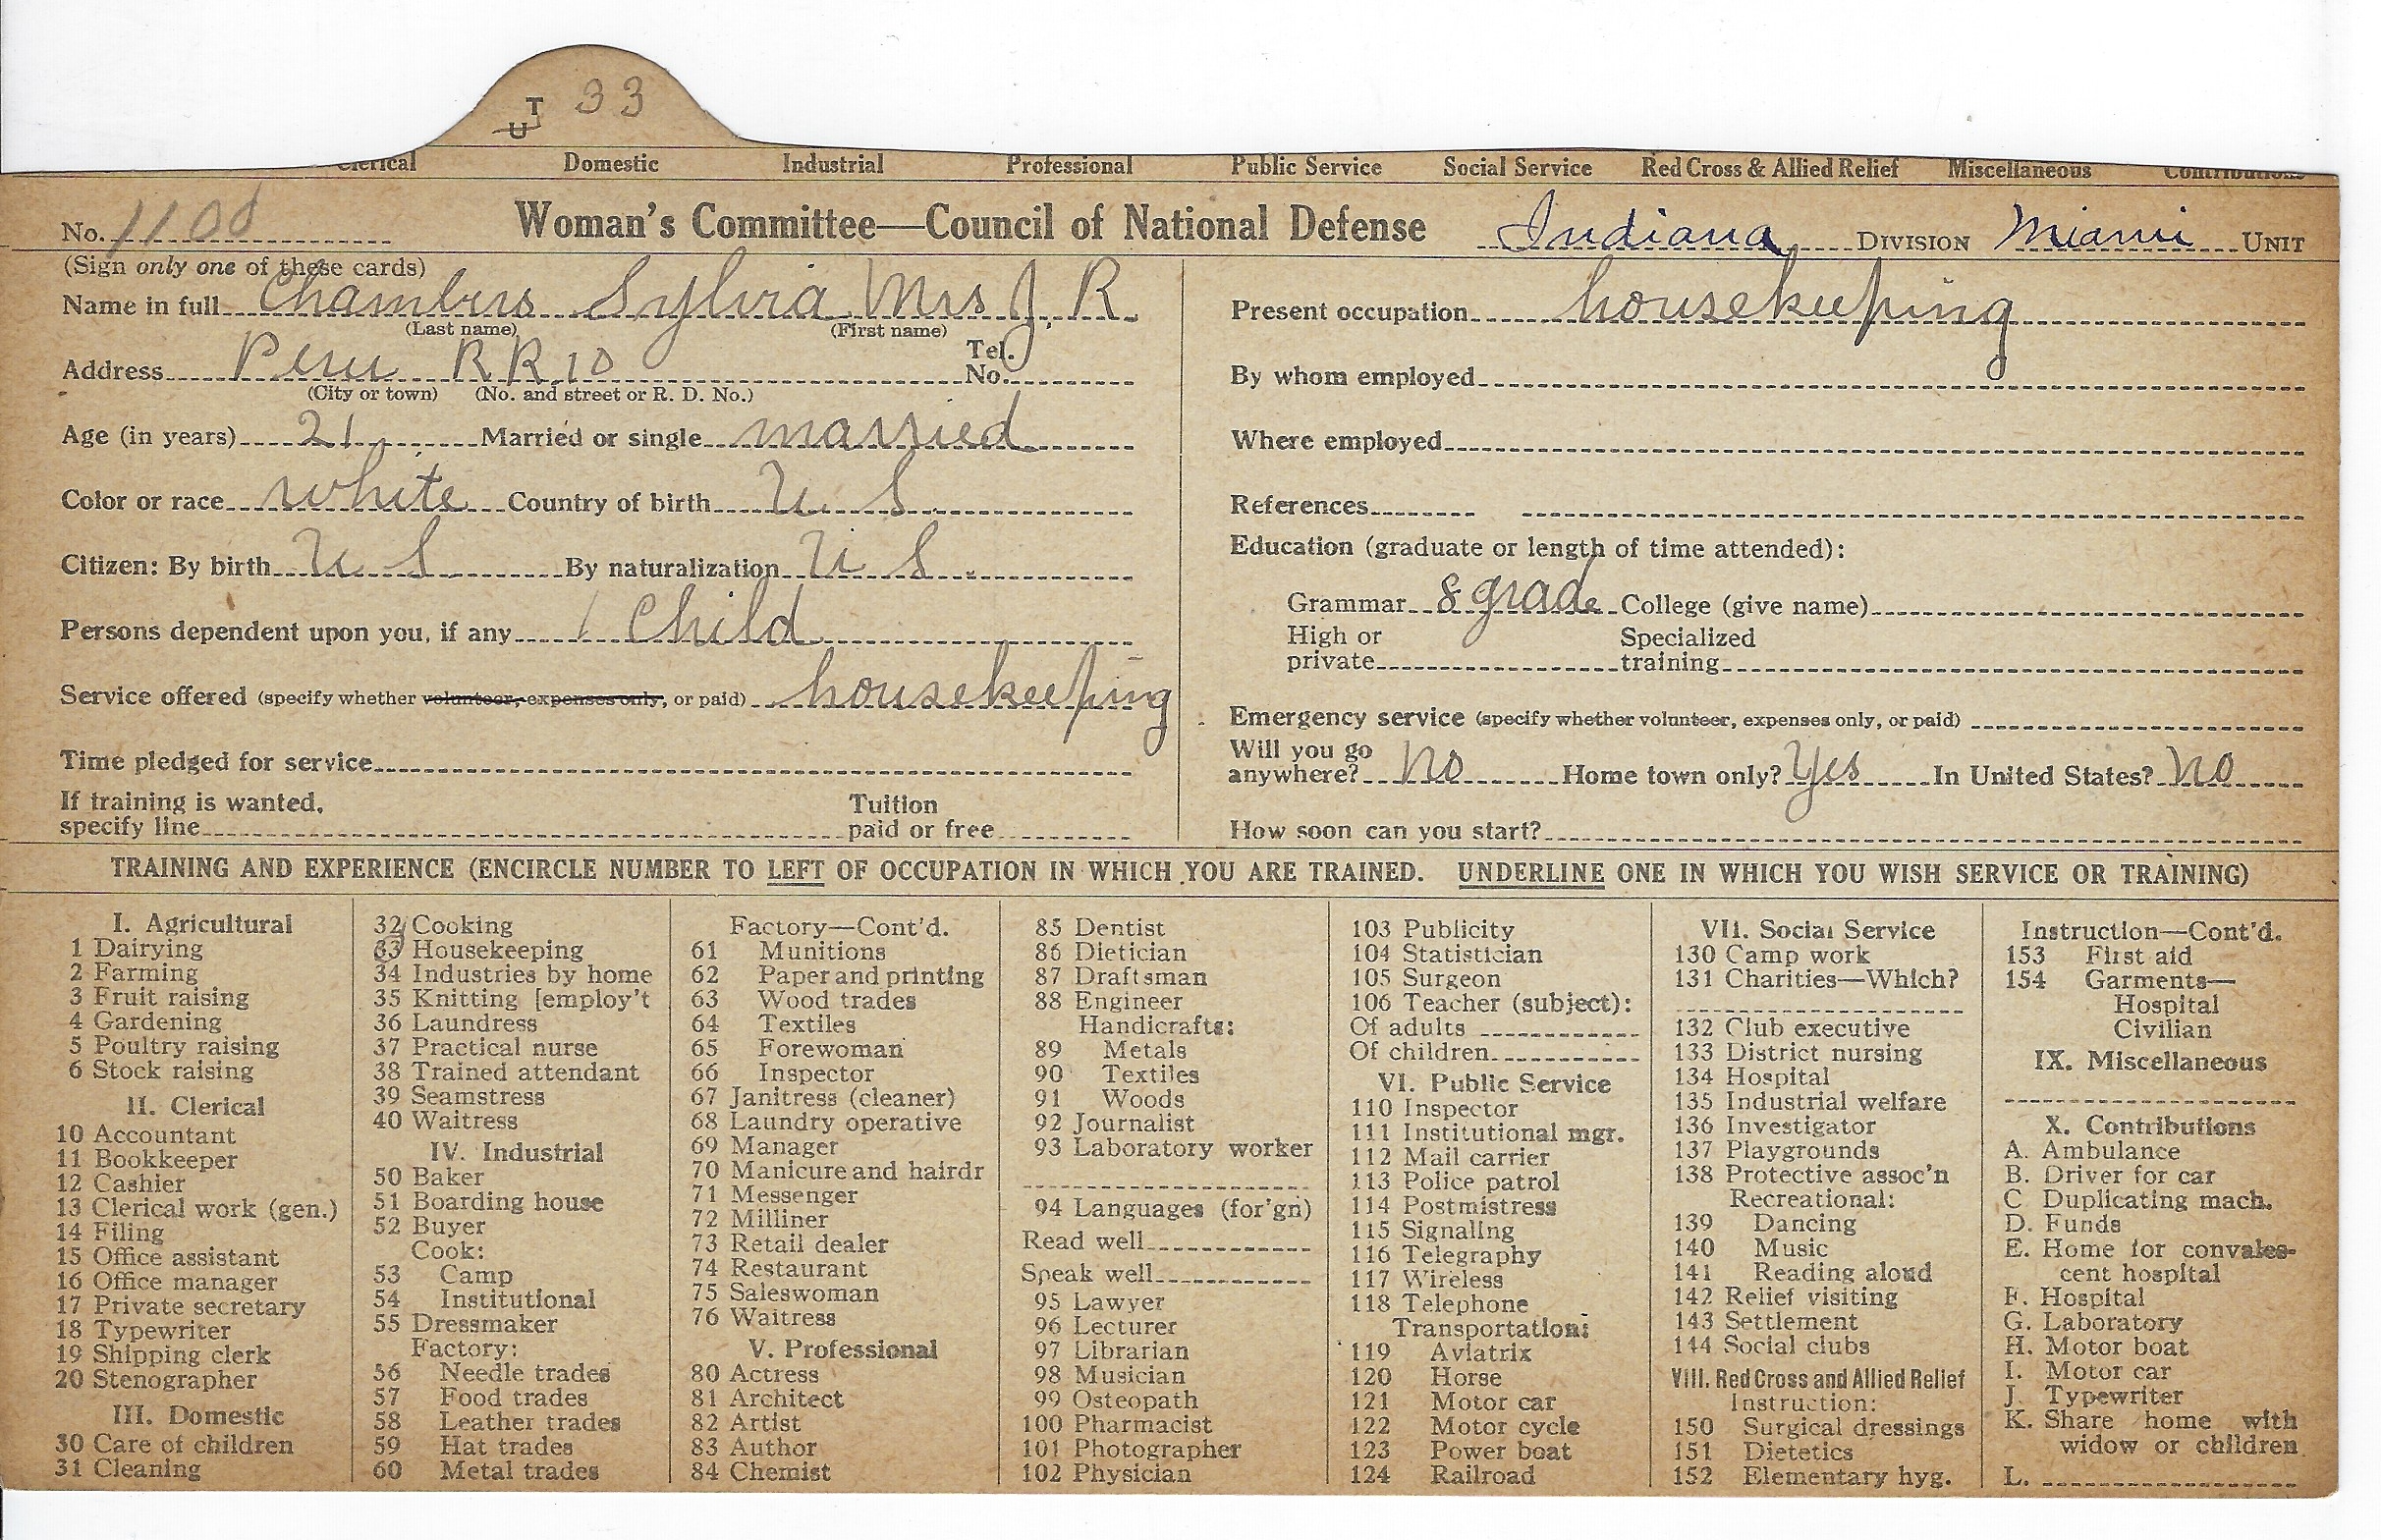 T 33
UJ
Clerical Domestic Industrial Professional Public Service Social Service Red Cross & Allied Relief Miscellaneous Contributions
No. 1100 Woman's Committee—Council of National Defense Indiana DIVISION Miami UNIT
(Sign only one of these cards)
Name in full Chambers Sylvia Mrs J. R.
(Last name) (First name)
Address Peru R R 10 Tel. No.
(City or town) (No. and street or R. D. No.)
Age (in years) 21 Married or single married
Color or race white Country of birth U. S.
Citizen: By birth U S By naturalization U S.
Persons dependent upon you, if any 1 Child
Service offered (specify whether volunteer, expenses only, or paid) housekeeping
Time pledged for service
If training is wanted, specify line Tuition paid or free
Present occupation housekeeping
By whom employed
Where employed
References
Education (graduate or length of time attended):
Grammar 8 grade College (give name)
High or private Specialized training
Emergency service (specify whether volunteer, expenses only, or paid)
Will you go anywhere? no Home town only? Yes In United States? no
How soon can you start?
TRAINING AND EXPERIENCE (ENCIRCLE NUMBER TO LEFT OF OCCUPATION IN WHICH YOU ARE TRAINED. UNDERLINE ONE IN WHICH YOU WISH SERVICE OR TRAINING)
I. Agricultural
1 Dairying
2 Farming
3 Fruit raising
4 Gardening
5 Poultry raising
6 Stock raising
II. Clerical
10 Accountant
11 Bookkeeper
12 Cashier
13 Clerical work (gen.)
14 Filing
15 Office assistant
16 Office manager
17 Private secretary
18 Typewriter
19 Shipping clerk
20 Stenographer
III. Domestic
30 Care of children
31 Cleaning
32 Cooking
33 Housekeeping
34 Industries by home
35 Knitting [employ't
36 Laundress
37 Practical nurse
38 Trained attendant
39 Seamstress
40 Waitress
IV. Industrial
50 Baker
51 Boarding house
52 Buyer
Cook:
53 Camp
54 Institutional
55 Dressmaker
Factory:
56 Needle trades
57 Food trades
58 Leather trades
59 Hat trades
60 Metal trades
Factory—Cont'd.
61 Munitions
62 Paper and printing
63 Wood trades
64 Textiles
65 Forewoman
66 Inspector
67 Janitress (cleaner)
68 Laundry operative
69 Manager
70 Manicure and hairdr
71 Messenger
72 Milliner
73 Retail dealer
74 Restaurant
75 Saleswoman
76 Waitress
V. Professional
80 Actress
81 Architect
82 Artist
83 Author
84 Chemist
85 Dentist
86 Dietician
87 Draftsman
88 Engineer
Handicrafts:
89 Metals
90 Textiles
91 Woods
92 Journalist
93 Laboratory worker
94 Languages (for'gn)
Read well
Speak well
95 Lawyer
96 Lecturer
97 Librarian
98 Musician
99 Osteopath
100 Pharmacist
101 Photographer
102 Physician
103 Publicity
104 Statistician
105 Surgeon
106 Teacher (subject):
Of adults
Of children
VI. Public Service
110 Inspector
111 Institutional mgr.
112 Mail carrier
113 Police patrol
114 Postmistress
115 Signaling
116 Telegraphy
117 Wireless
118 Telephone
Transportation:
119 Aviatrix
120 Horse
121 Motor car
122 Motor cycle
123 Power boat
124 Railroad
VII. Social Service
130 Camp work
131 Charities—Which?
132 Club executive
133 District nursing
134 Hospital
135 Industrial welfare
136 Investigator
137 Playgrounds
138 Protective assoc'n
Recreational:
139 Dancing
140 Music
141 Reading aloud
142 Relief visiting
143 Settlement
144 Social clubs
VIII. Red Cross and Allied Relief
Instruction:
150 Surgical dressings
151 Dietetics
152 Elementary hyg.
Instruction—Cont'd.
153 First aid
154 Garments—
Hospital
Civilian
IX. Miscellaneous
X. Contributions
A. Ambulance
B. Driver for car
C Duplicating mach.
D. Funds
E. Home for convales-
cent hospital
F. Hospital
G. Laboratory
H. Motor boat
I. Motor car
J. Typewriter
K. Share home with
widow or children
L.